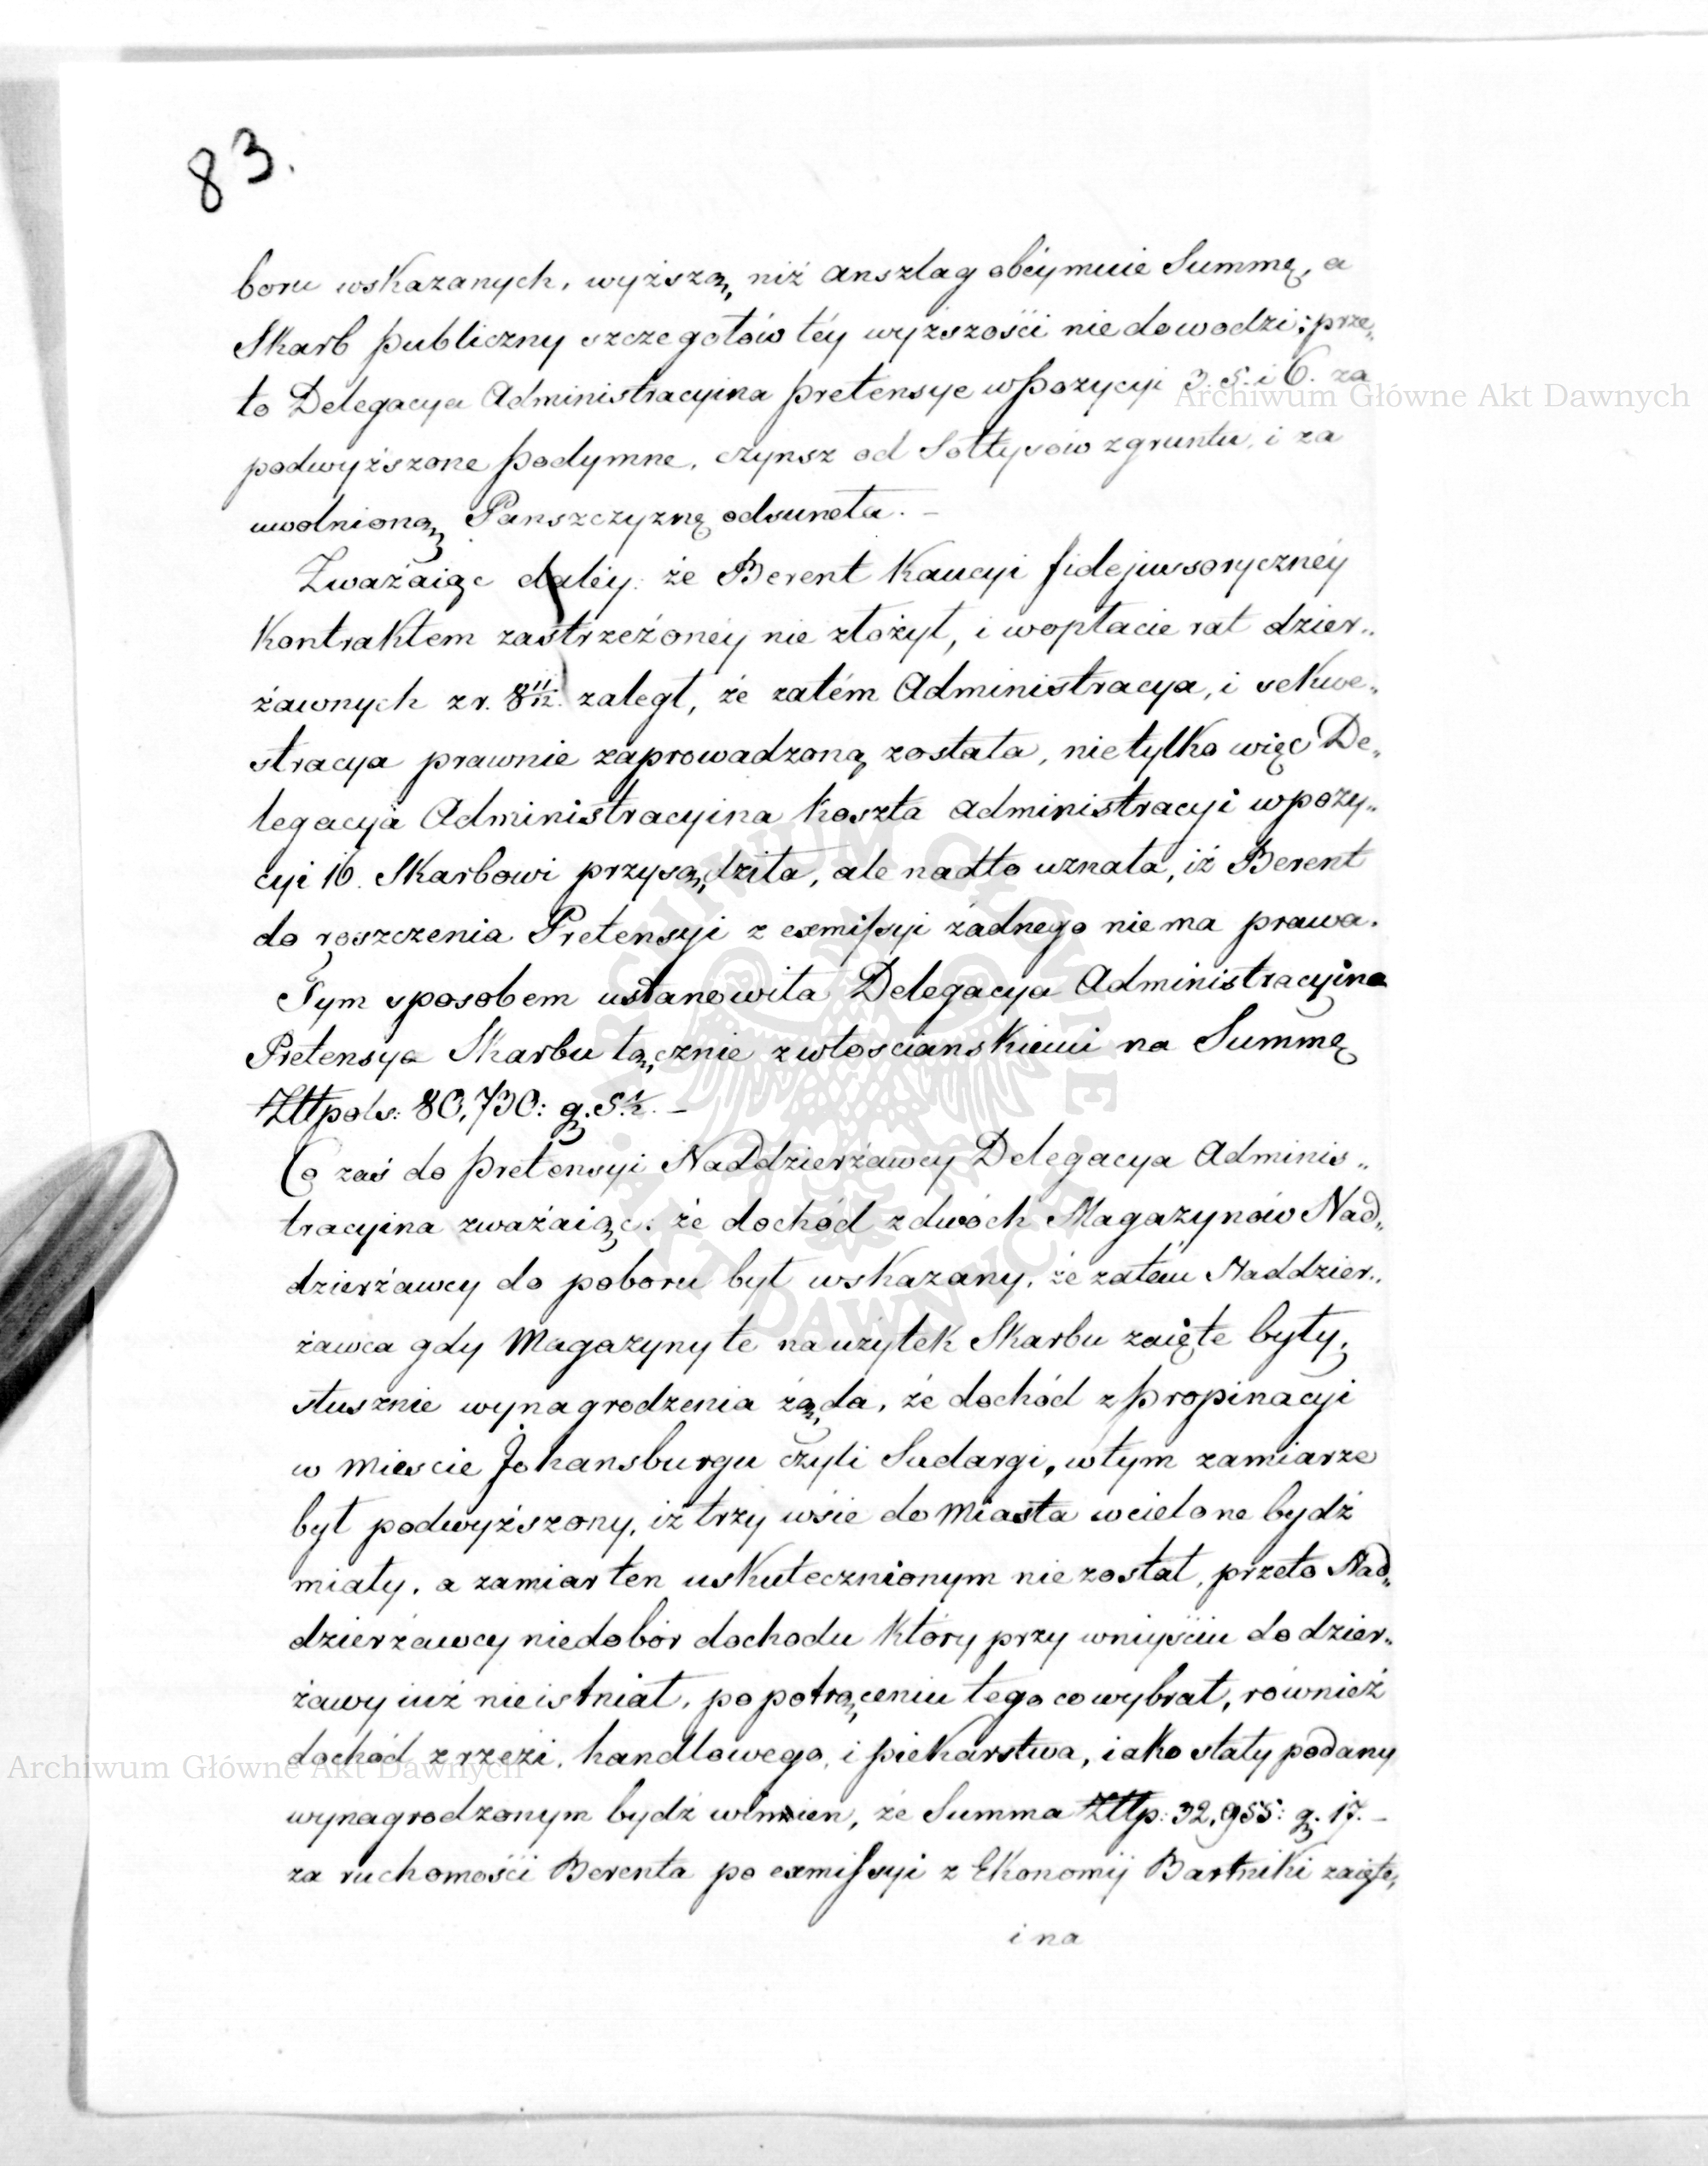 83.
boru wskazanych, wyższą, niż anszlag obéymuie Summę, a
Skarb publiczny szczegółów téy wyższości niedowodzi; prze„
to Delegacya Administracyina pretensye w pozycyi 3. 5. i 6. za
podwyższone podymne, czynsz od Sołtysów z gruntu, i za
uwolnioną Panszczyznę odsuneła. –
Zważaiąc daléy: że Berent Kaucyi fidejussorycznéy
Kontraktem zastrzeżonéy nie złożył, i w opłacie rat dzier„
żawnych z r. 8 11/12. zaległ, że zatém Administracya, i sekwe„
stracya prawnie zaprowadzoną została, nie tylko więc De„
legacya Administracyina koszta administracyi w pozy„
cyi 16. Skarbowi przysądziła, ale nadto uznała, iż Berent
do roszczenia Pretensyi z exmissyi żadnego nie ma prawa.
Tym sposobem ustanowiła Delegacya Administracyina
Pretensya Skarbu łącznie z włościanskiemi na Summę
Złtpols: 80,730: g. 5½. –
Co zaś do pretensyi Naddzierżawcy Delegacya Adminis„
tracyina zważaiąc: że dochód z dwóch Magazynów Nad„
dzierżawcy do poboru był wskazany, że zatém Naddzier„
żawca gdy Magazyny te na użytek Skarbu zaięte były,
słusznie wynagrodzenia żąda, że dochód z propinacyi
w mieście Johansburgu czyli Sudargi, w tym zamiarze
był podwyższony, iż trzy wsie do Miasta wcielone bydź
miały, a zamiar ten uskutecznionym nie został, przeto Nad„
dzierżawcy niedobór dochodu który przy wniyściu do dzier„
żawy iuż nie istniał, po potrąceniu tego co wybrał, również
dochód z rzezi, handlowego, i piekarstwa, iako stały podany
wynagrodzonym bydź winien, że Summa Złtp: 32,955: g. 17. –
za ruchomości Berenta po exmissyi z Ekonomij Bartniki zaięte,
i na
Archiwum Główne Akt Dawnych
Archiwum Główne Akt Dawnych
ARCHIWUM GŁÓWNE AKT DAWNYCH